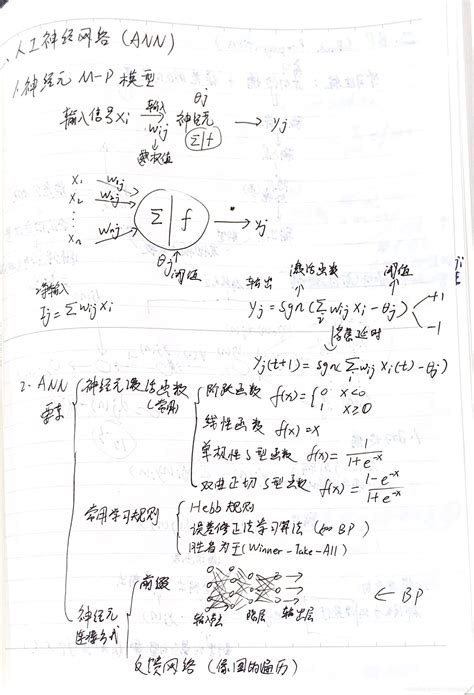 一、人工神经网络 (ANN)
1. 神经元 M-P 模型
θj
输入信号 Xi 输入 Wij 神经元 Σ|f → yj
数权值
X1 W1j
X2 W2j
Xn Wnj
Σ | f → yj
θj 阈值
净输入 Ij = Σ Wij Xi
输出 激活函数 阈值
yj = sgn(Σi Wij Xi - θj) +1 -1
考虑延时
yj(t+1) = sgn Σi Wij Xi(t) - θj)
2. ANN 要素
神经元激活函数 (常用)
阶跃函数 f(x) = {0 x<0 1 x≥0
线性函数 f(x) = x
单极性S型函数 f(x) = 1/(1+e^-x)
双曲正切S型函数 f(x) = (1-e^-x)/(1+e^-x)
常用学习规则
Hebb 规则
误差修正法学习算法 (如 BP)
胜者为王 (Winner-Take-All)
神经元连接方式
前馈
输入层 隐层 输出层
← BP
反馈网络 (像图的遍历)